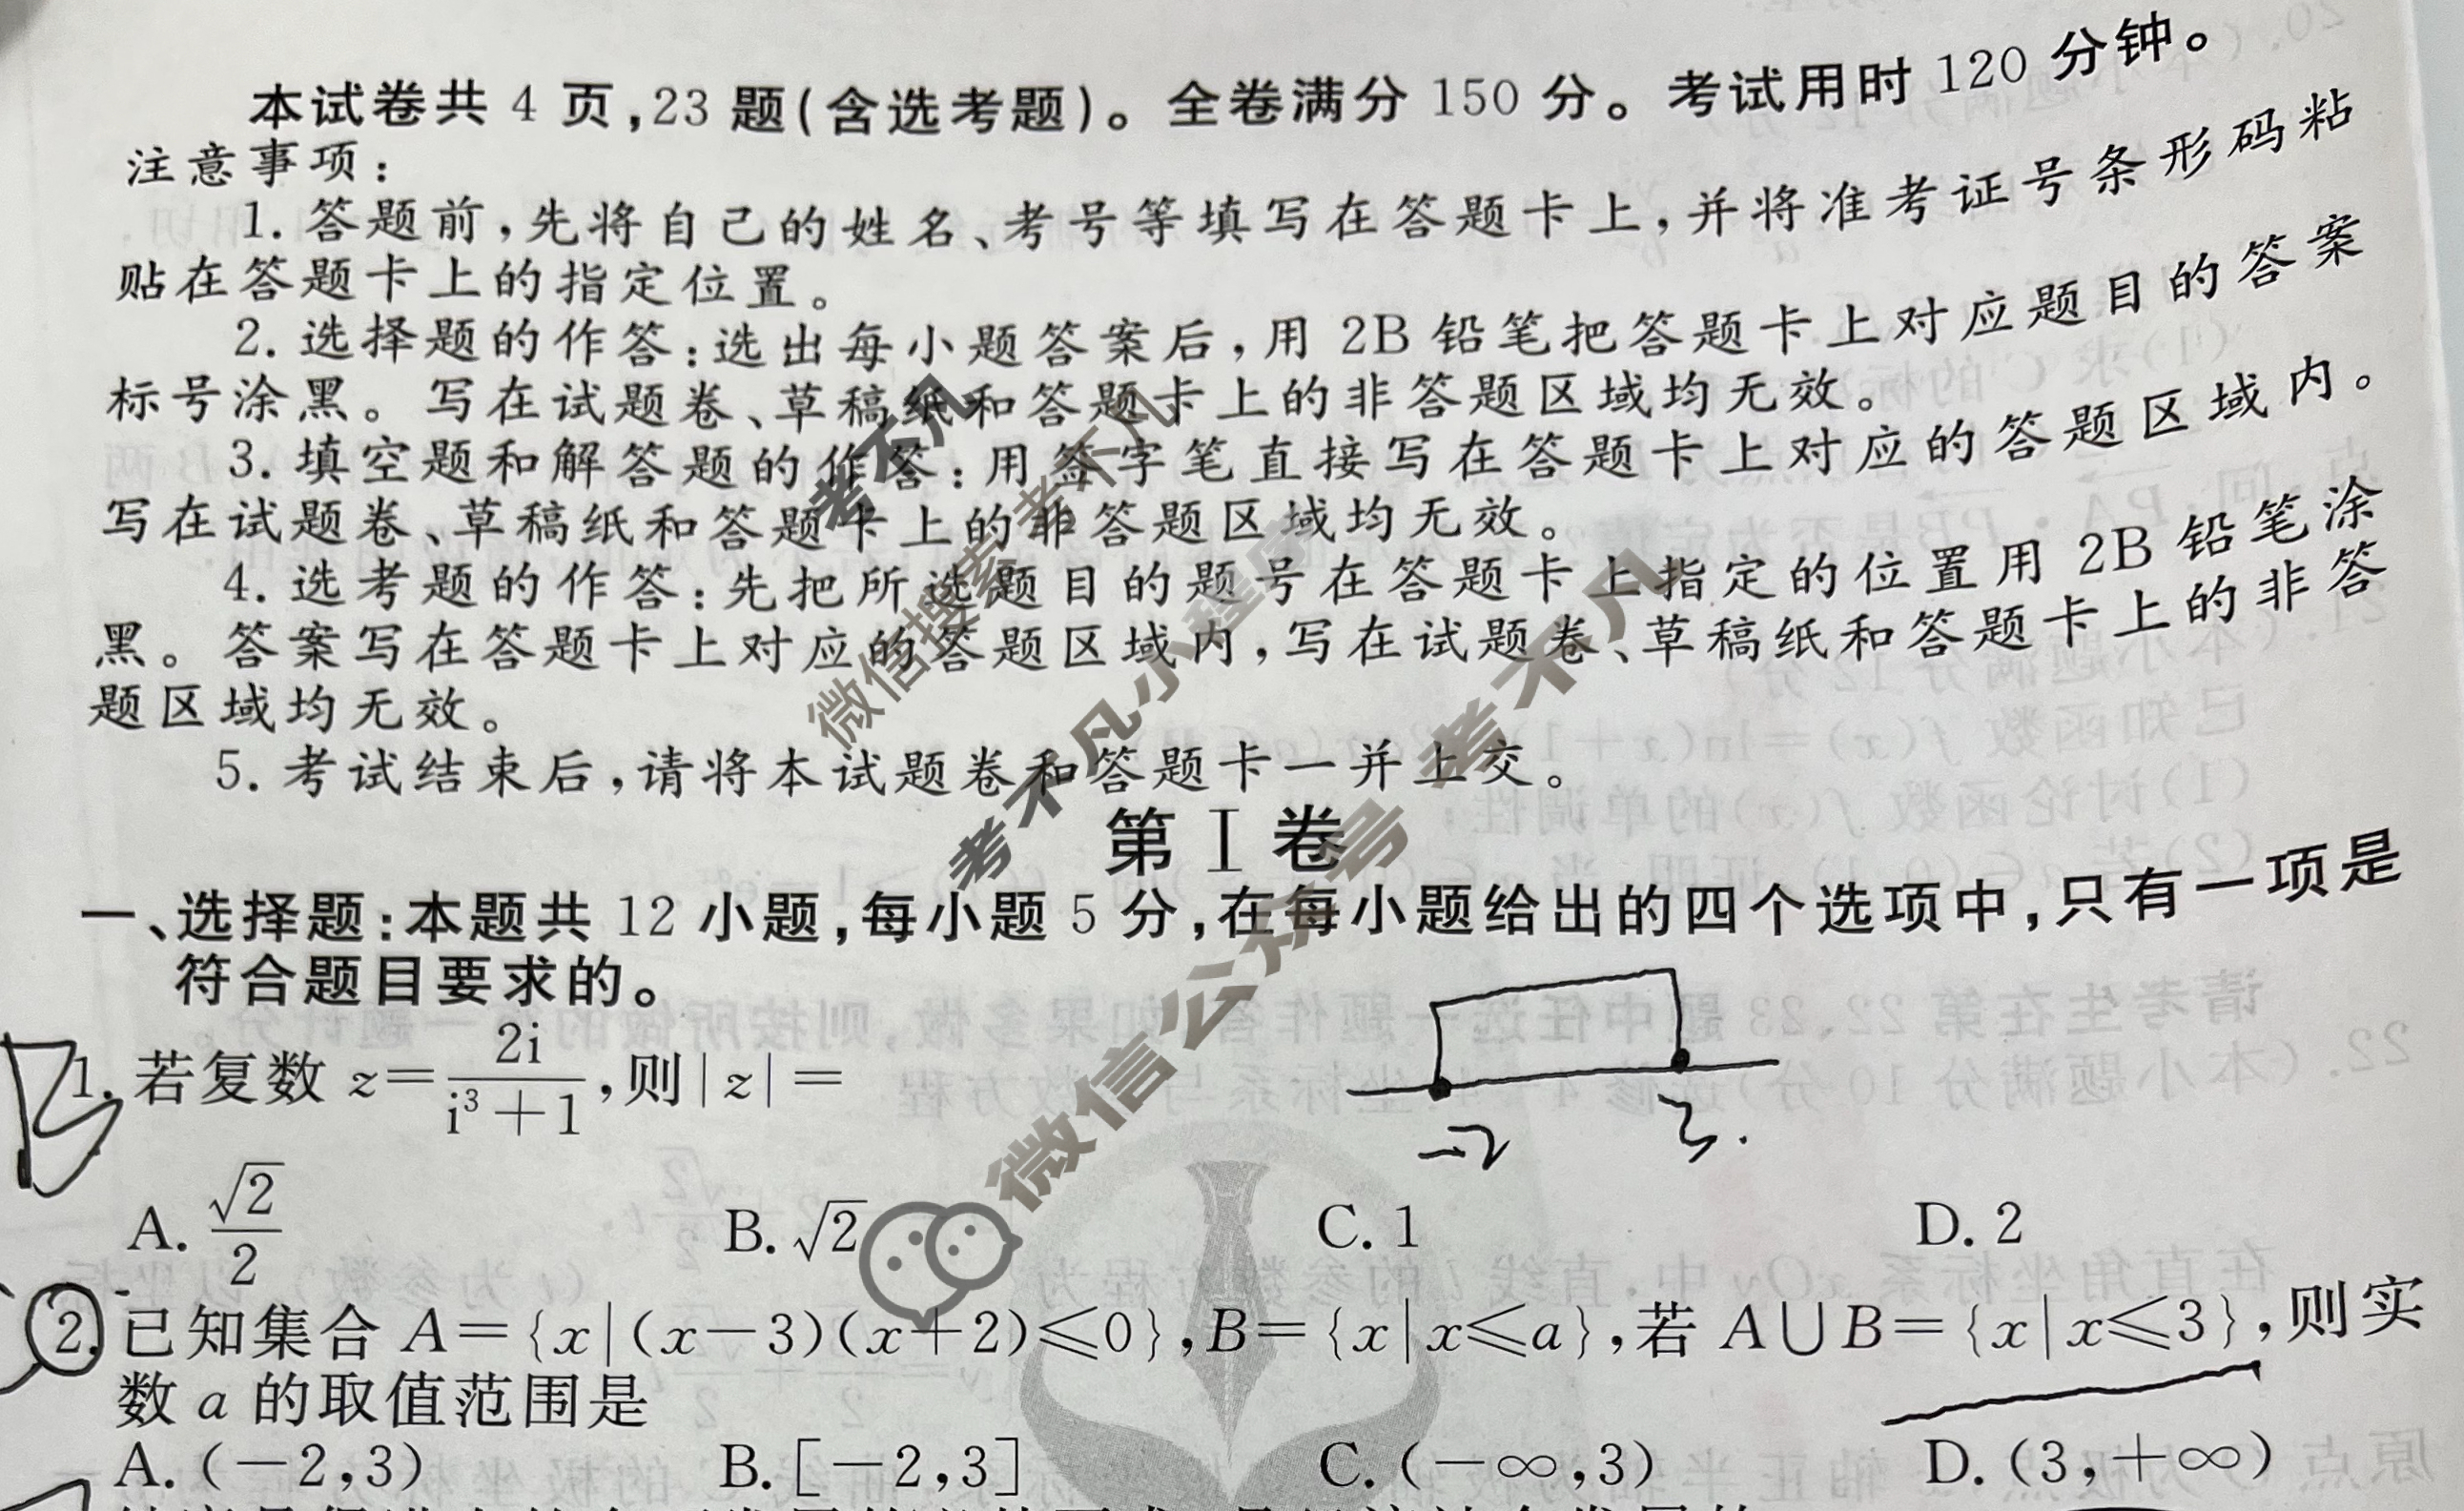 本试卷共 4 页,23 题(含选考题)。全卷满分 150 分。考试用时 120 分钟。
注意事项:
1. 答题前,先将自己的姓名、考号等填写在答题卡上,并将准考证号条形码粘
贴在答题卡上的指定位置。
2. 选择题的作答:选出每小题答案后,用 2B 铅笔把答题卡上对应题目的答案
标号涂黑。写在试题卷、草稿纸和答题卡上的非答题区域均无效。
3. 填空题和解答题的作答:用签字笔直接写在答题卡上对应的答题区域内。
写在试题卷、草稿纸和答题卡上的非答题区域均无效。
4. 选考题的作答:先把所选题目的题号在答题卡上指定的位置用 2B 铅笔涂
黑。答案写在答题卡上对应的答题区域内,写在试题卷、草稿纸和答题卡上的非答
题区域均无效。
5. 考试结束后,请将本试题卷和答题卡一并上交。
第 I 卷
一、选择题:本题共 12 小题,每小题 5 分,在每小题给出的四个选项中,只有一项是
符合题目要求的。
B
1. 若复数 z=2i/(i³+1),则|z|=
-2 3.
A. √2/2 B. √2 C. 1 D. 2
2. 已知集合 A={x|(x-3)(x+2)≤0},B={x|x≤a},若 A∪B={x|x≤3},则实
数 a 的取值范围是
A. (-2,3) B. [-2,3] C. (-∞,3) D. (3,+∞)
考不凡
微信搜索 考不凡
考不凡小程序
微信公众号 考不凡